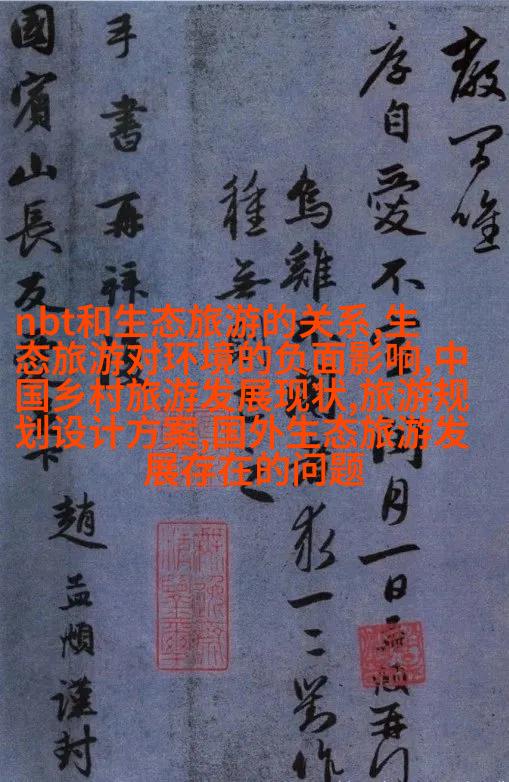 nbt和生态旅游的关系,生
态旅游对环境的负面影响,中
国乡村旅游发展现状,旅游规
划设计方案,国外生态旅游发
展存在的问题
唯
序自愛不 月一日孟頫再
烏雞 求一二對作
種無 之
手書再拜
國賓山長友
趙孟頫謹封